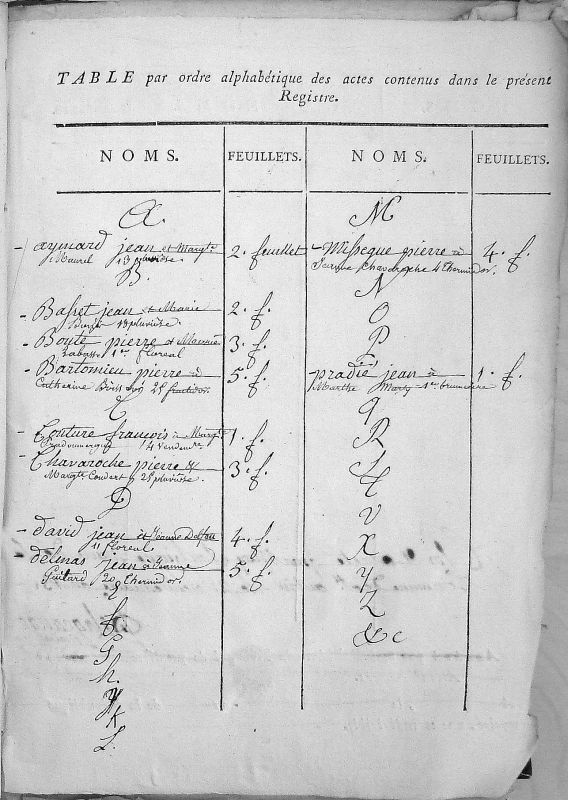 TABLE par ordre alphabétique des actes contenus dans le présent
Registre.
NOMS. FEUILLETS.
A
- aymard jean et Margte 2. feuillet
Maurel 13 pluviose.
B.
- Basset jean et Marie 2. f.
13 pluviose.
- Boute pierre et 3. f.
1er floreal
- Bartomieu pierre à 5. f.
Catherine 28
C
- Couture françois à Margte 1. f.
4 Vendemre
- Chavaroche pierre & 3. f.
Margte Coudert 28 pluviose.
D
- david jean et jeanne Delfau 4. f.
11 floreal
- delmas jean à jeanne 5. f.
Guitard 20 Thermidor.
E
f
G
h.
J
K
L.
NOMS. FEUILLETS.
M
- Missegue pierre à 4. f.
Chavaroche 4 Thermidor.
N
O
P
pradié jean à 1. f.
Marthe Marty 1er brumaire
q
R
S
t
V
X
y
Z
&c